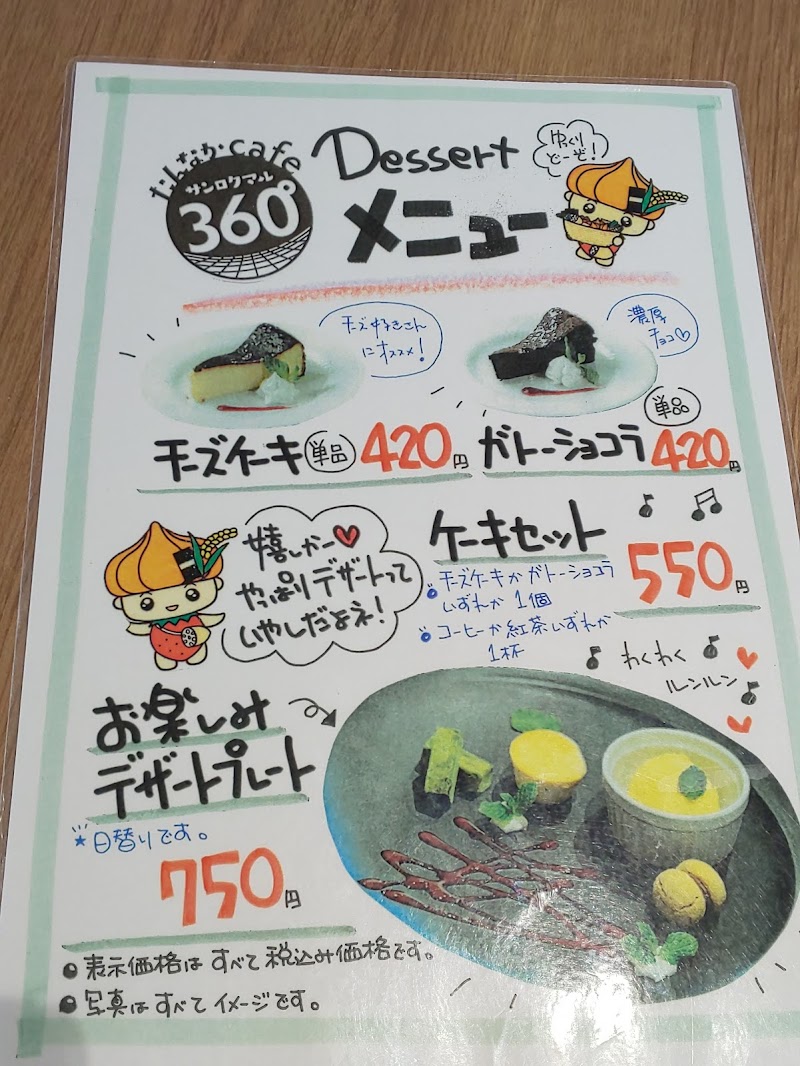 たんなかcafe
サンロクマル
360°
Dessert
メニュー
ゆっくり
どーぞ!
チーズ好きさん
にオススメ!
濃厚
チョコ♡
チーズケーキ 単品 420円
ガトーショコラ 単品 420円
嬉しかー♥
やっぱりデザートって
いやしだよネ!
ケーキセット
550円
チーズケーキか ガトーショコラ
いずれか 1個
コーヒーか紅茶いずれか
1杯
わくわく
ルンルン
お楽しみ
デザートプレート
★日替りです。
750円
●表示価格は すべて 税込み価格です。
●写真は すべて イメージです。